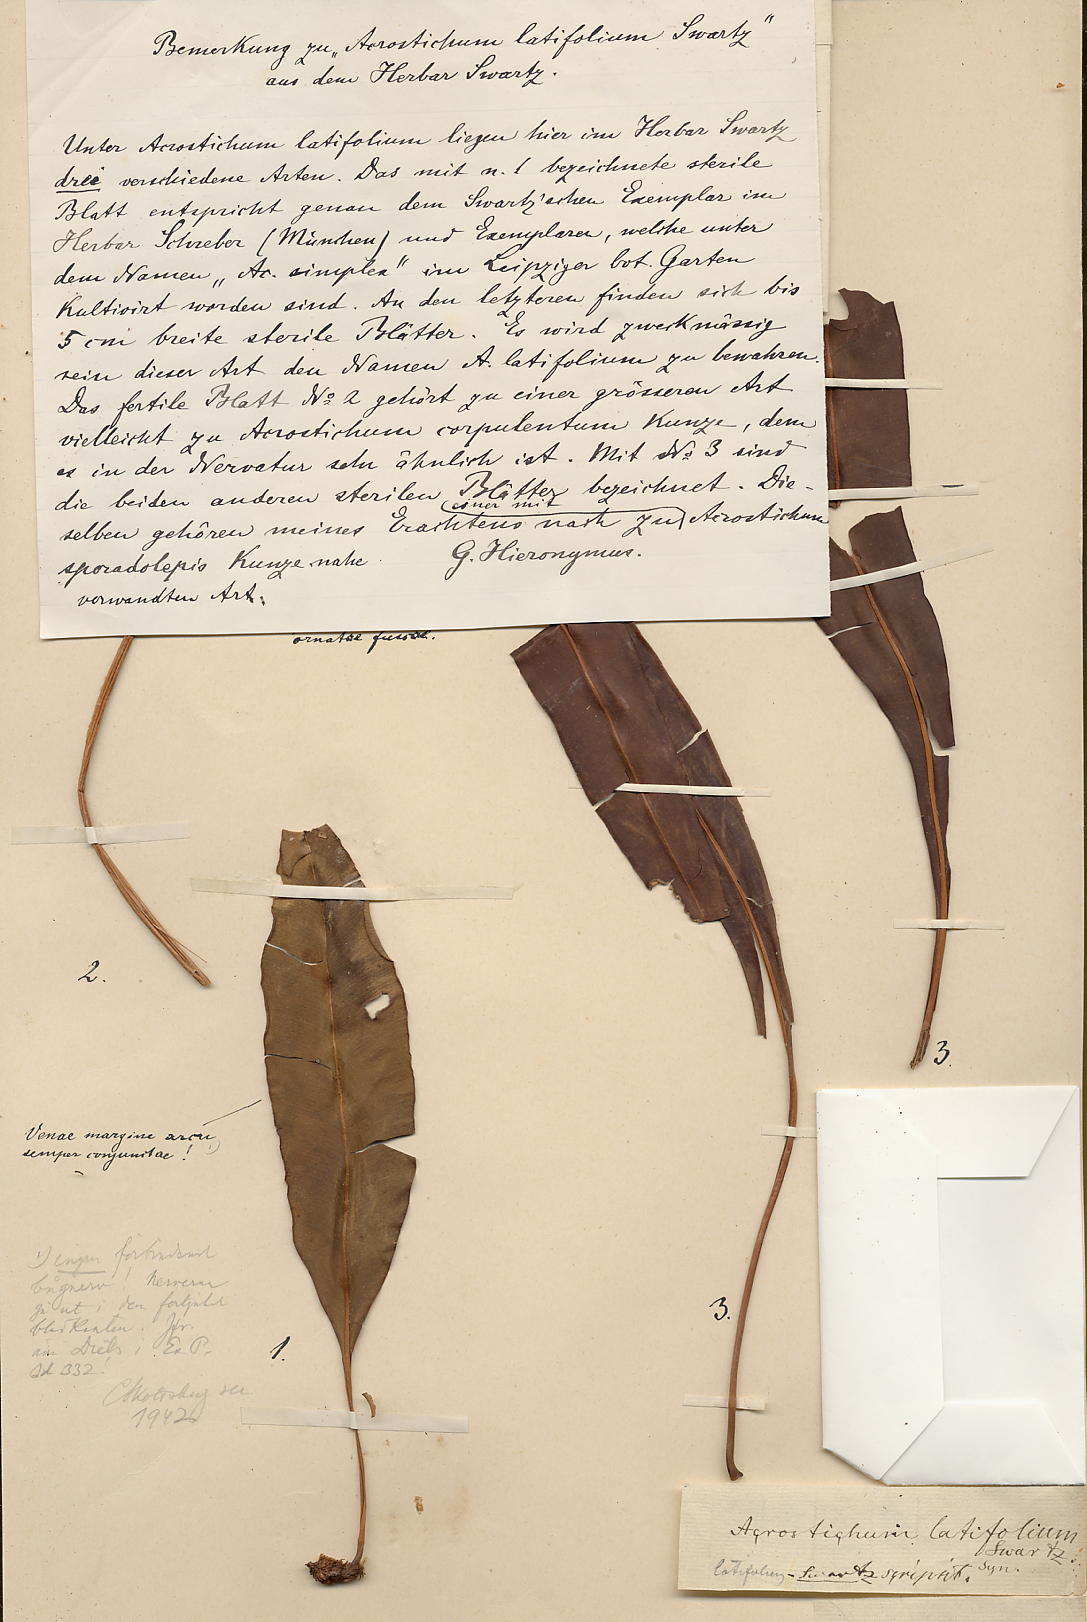 Bemerkung zu „Acrostichum latifolium Swartz"
aus dem Herbar Swartz.
Unter Acrostichum latifolium liegen hier im Herbar Swartz
drei verschiedene Arten. Das mit n. 1 bezeichnete sterile
Blatt entspricht genau dem Swartz'schen Exemplar im
Herbar Schreber (München) und Exemplaren, welche unter
dem Namen „Ac. simplex" im Leipziger bot. Garten
kultivirt worden sind. An den letzteren finden sich bis
5 cm breite sterile Blätter. Es wird zweckmässig
sein dieser Art den Namen A. latifolium zu bewahren.
Das fertile Blatt No 2 gehört zu einer grösseren Art
vielleicht zu Acrostichum corpulentum Kunze, dem
es in der Nervatur sehr ähnlich ist. Mit No 3 sind
die beiden anderen sterilen Blätter bezeichnet. Die-
selben gehören meines Erachtens nach zu (einer mit) Acrostichum
sporadolepis Kunze nahe
verwandten Art.
G. Hieronymus.
ornatae fuscae.
2.
3.
Venae margine arcu
semper conjunctae!
1)
förbindand
nerverna
ut i den
bladkanten. Jfr.
i E. P.
332!
C Skottsberg
1942
1.
3.
Acrostichum latifolium
Swartz
Syn.
latifolium - Swartz scripsit.